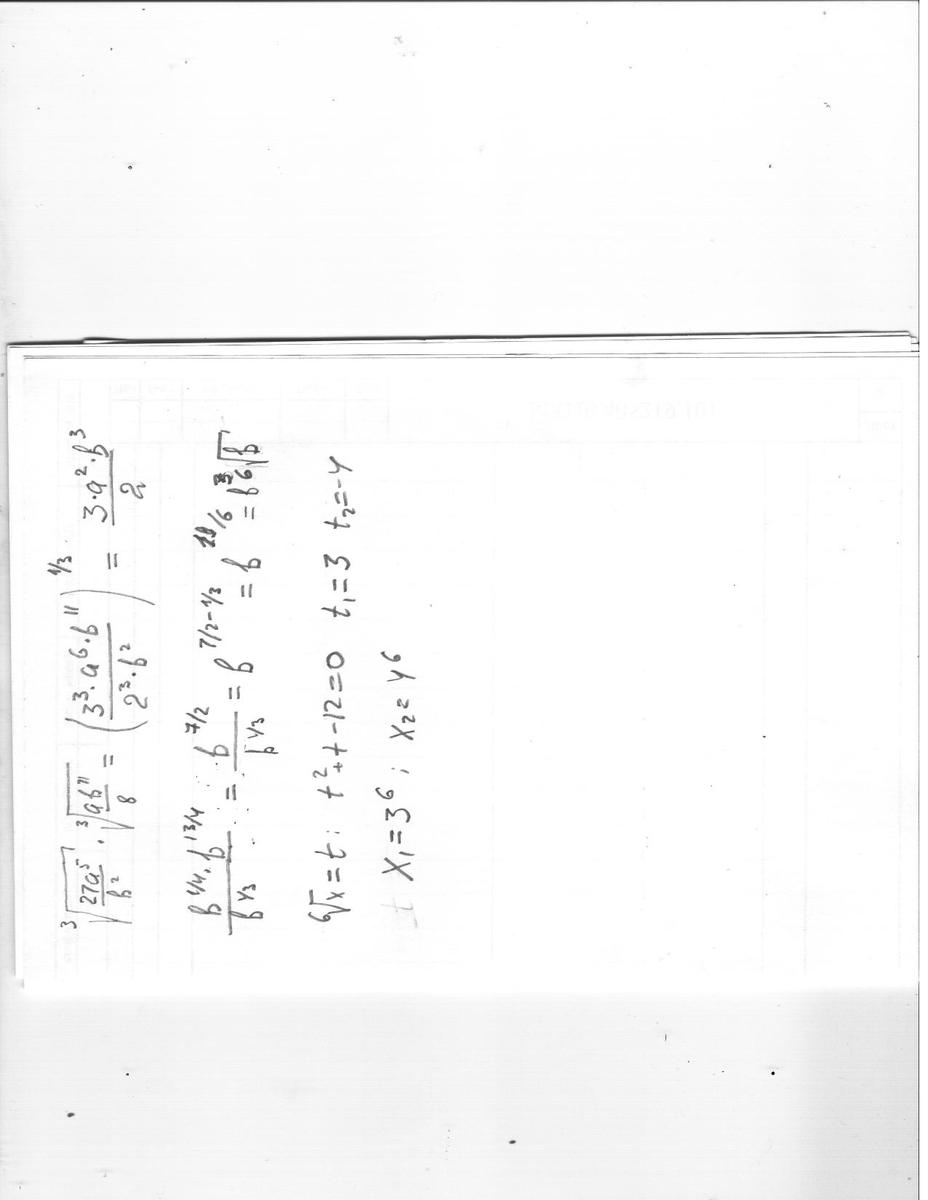 ∛(27a⁵/b²) · ∛(ab¹¹/8) = (3³·a⁶·b¹¹/2³·b²)^1/3 = 3·a²·b³/2
b^1/4 · b^13/4 / b^1/3 = b^7/2 / b^1/3 = b^7/2-1/3 = b^19/6 = b³ ⁶√b
⁶√x = t: t² + t - 12 = 0 t₁ = 3 t₂ = -4
x₁ = 3⁶; x₂ = 4⁶